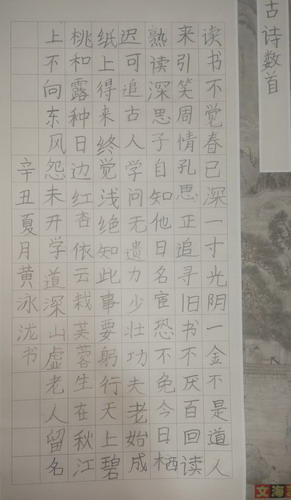 古诗数首
读书不觉春已深一寸光阴一金不是道人
来引笑周情孔思正追寻旧书不厌百回读
熟读深思子自知他日名宦恐不免今日栖
迟可追古人学问无遗力少壮功夫老始成
纸上得来终觉浅绝知此事要躬行天上碧
桃和露种日边红杏依云栽芙蓉生在秋江
上不向东风怨未开学道深山虚老人留名
辛丑夏月黄泳泷书
文海